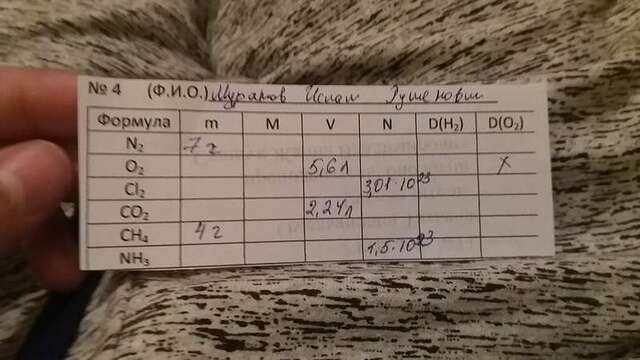 № 4 (Ф.И.О.) Муратов Ислам
Формула m M V N D(H₂) D(O₂)
N₂ 7 г
O₂ 5,6 л x
Cl₂ 3,01·10²³
CO₂ 2,24 л
CH₄ 4 г
NH₃ 1,5·10²³